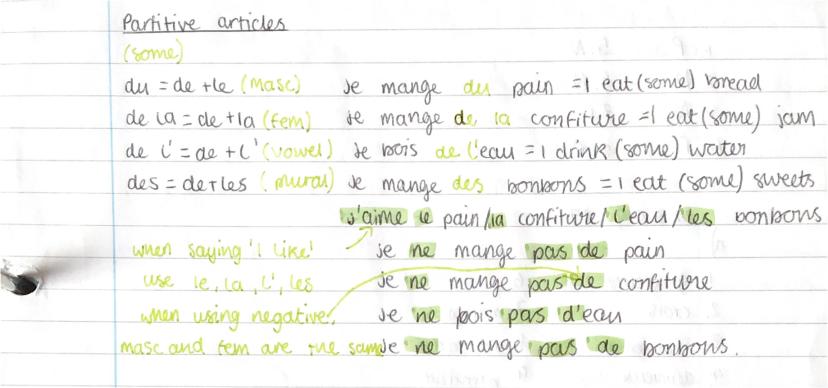 Partitive articles
(some)
du = de + le (masc) Je mange du pain = I eat (some) bread
de la = de + la (fem) Je mange de la confiture = I eat (some) jam
de l' = de + l' (vowel) Je bois de l'eau = I drink (some) water
des = de + les (plural) Je mange des bonbons = I eat (some) sweets
J'aime le pain/la confiture/l'eau/les bonbons
when saying 'I like' Je ne mange pas de pain
use le, la, l', les Je ne mange pas de confiture
when using negative, Je ne bois pas d'eau
masc and fem are the same Je ne mange pas de bonbons.